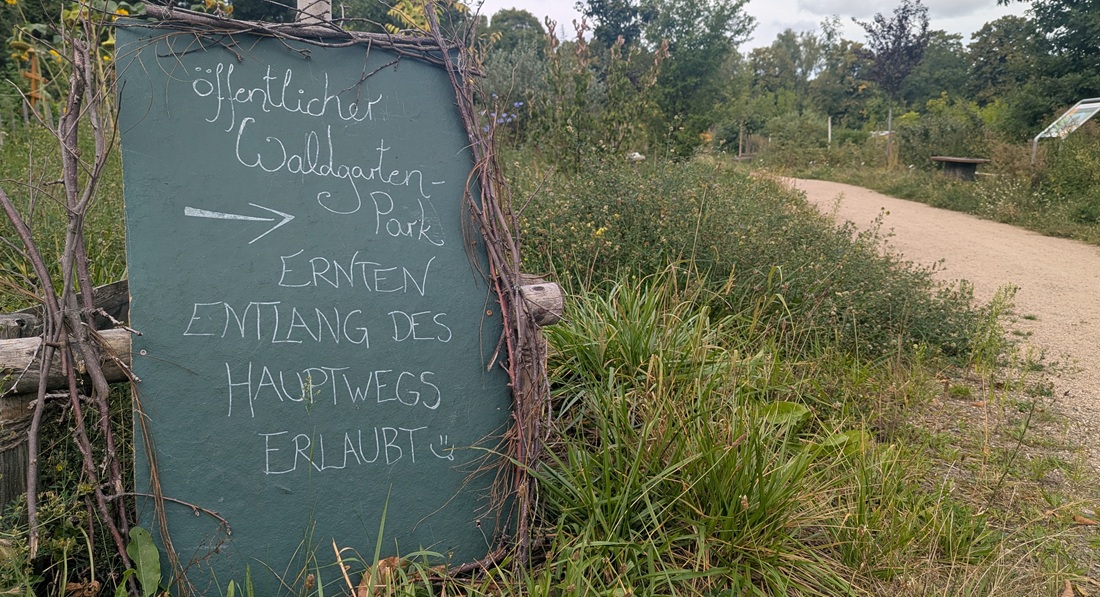 öffentlicher
Waldgarten-
Park
ERNTEN
ENTLANG DES
HAUPTWEGS
ERLAUBT